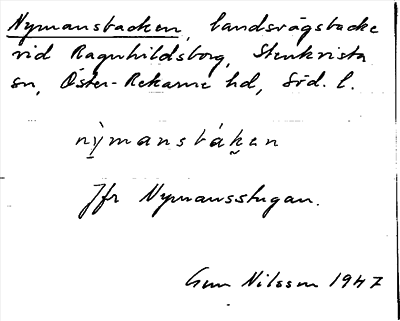 Nymansbacken, landsvägsbacke
vid Ragnhildsborg, Stenkvista
sn, Öster-Rekarne hd, Söd. l.
nỳmansbáken
Jfr Nymansstugan.
Gun Nilsson 1947